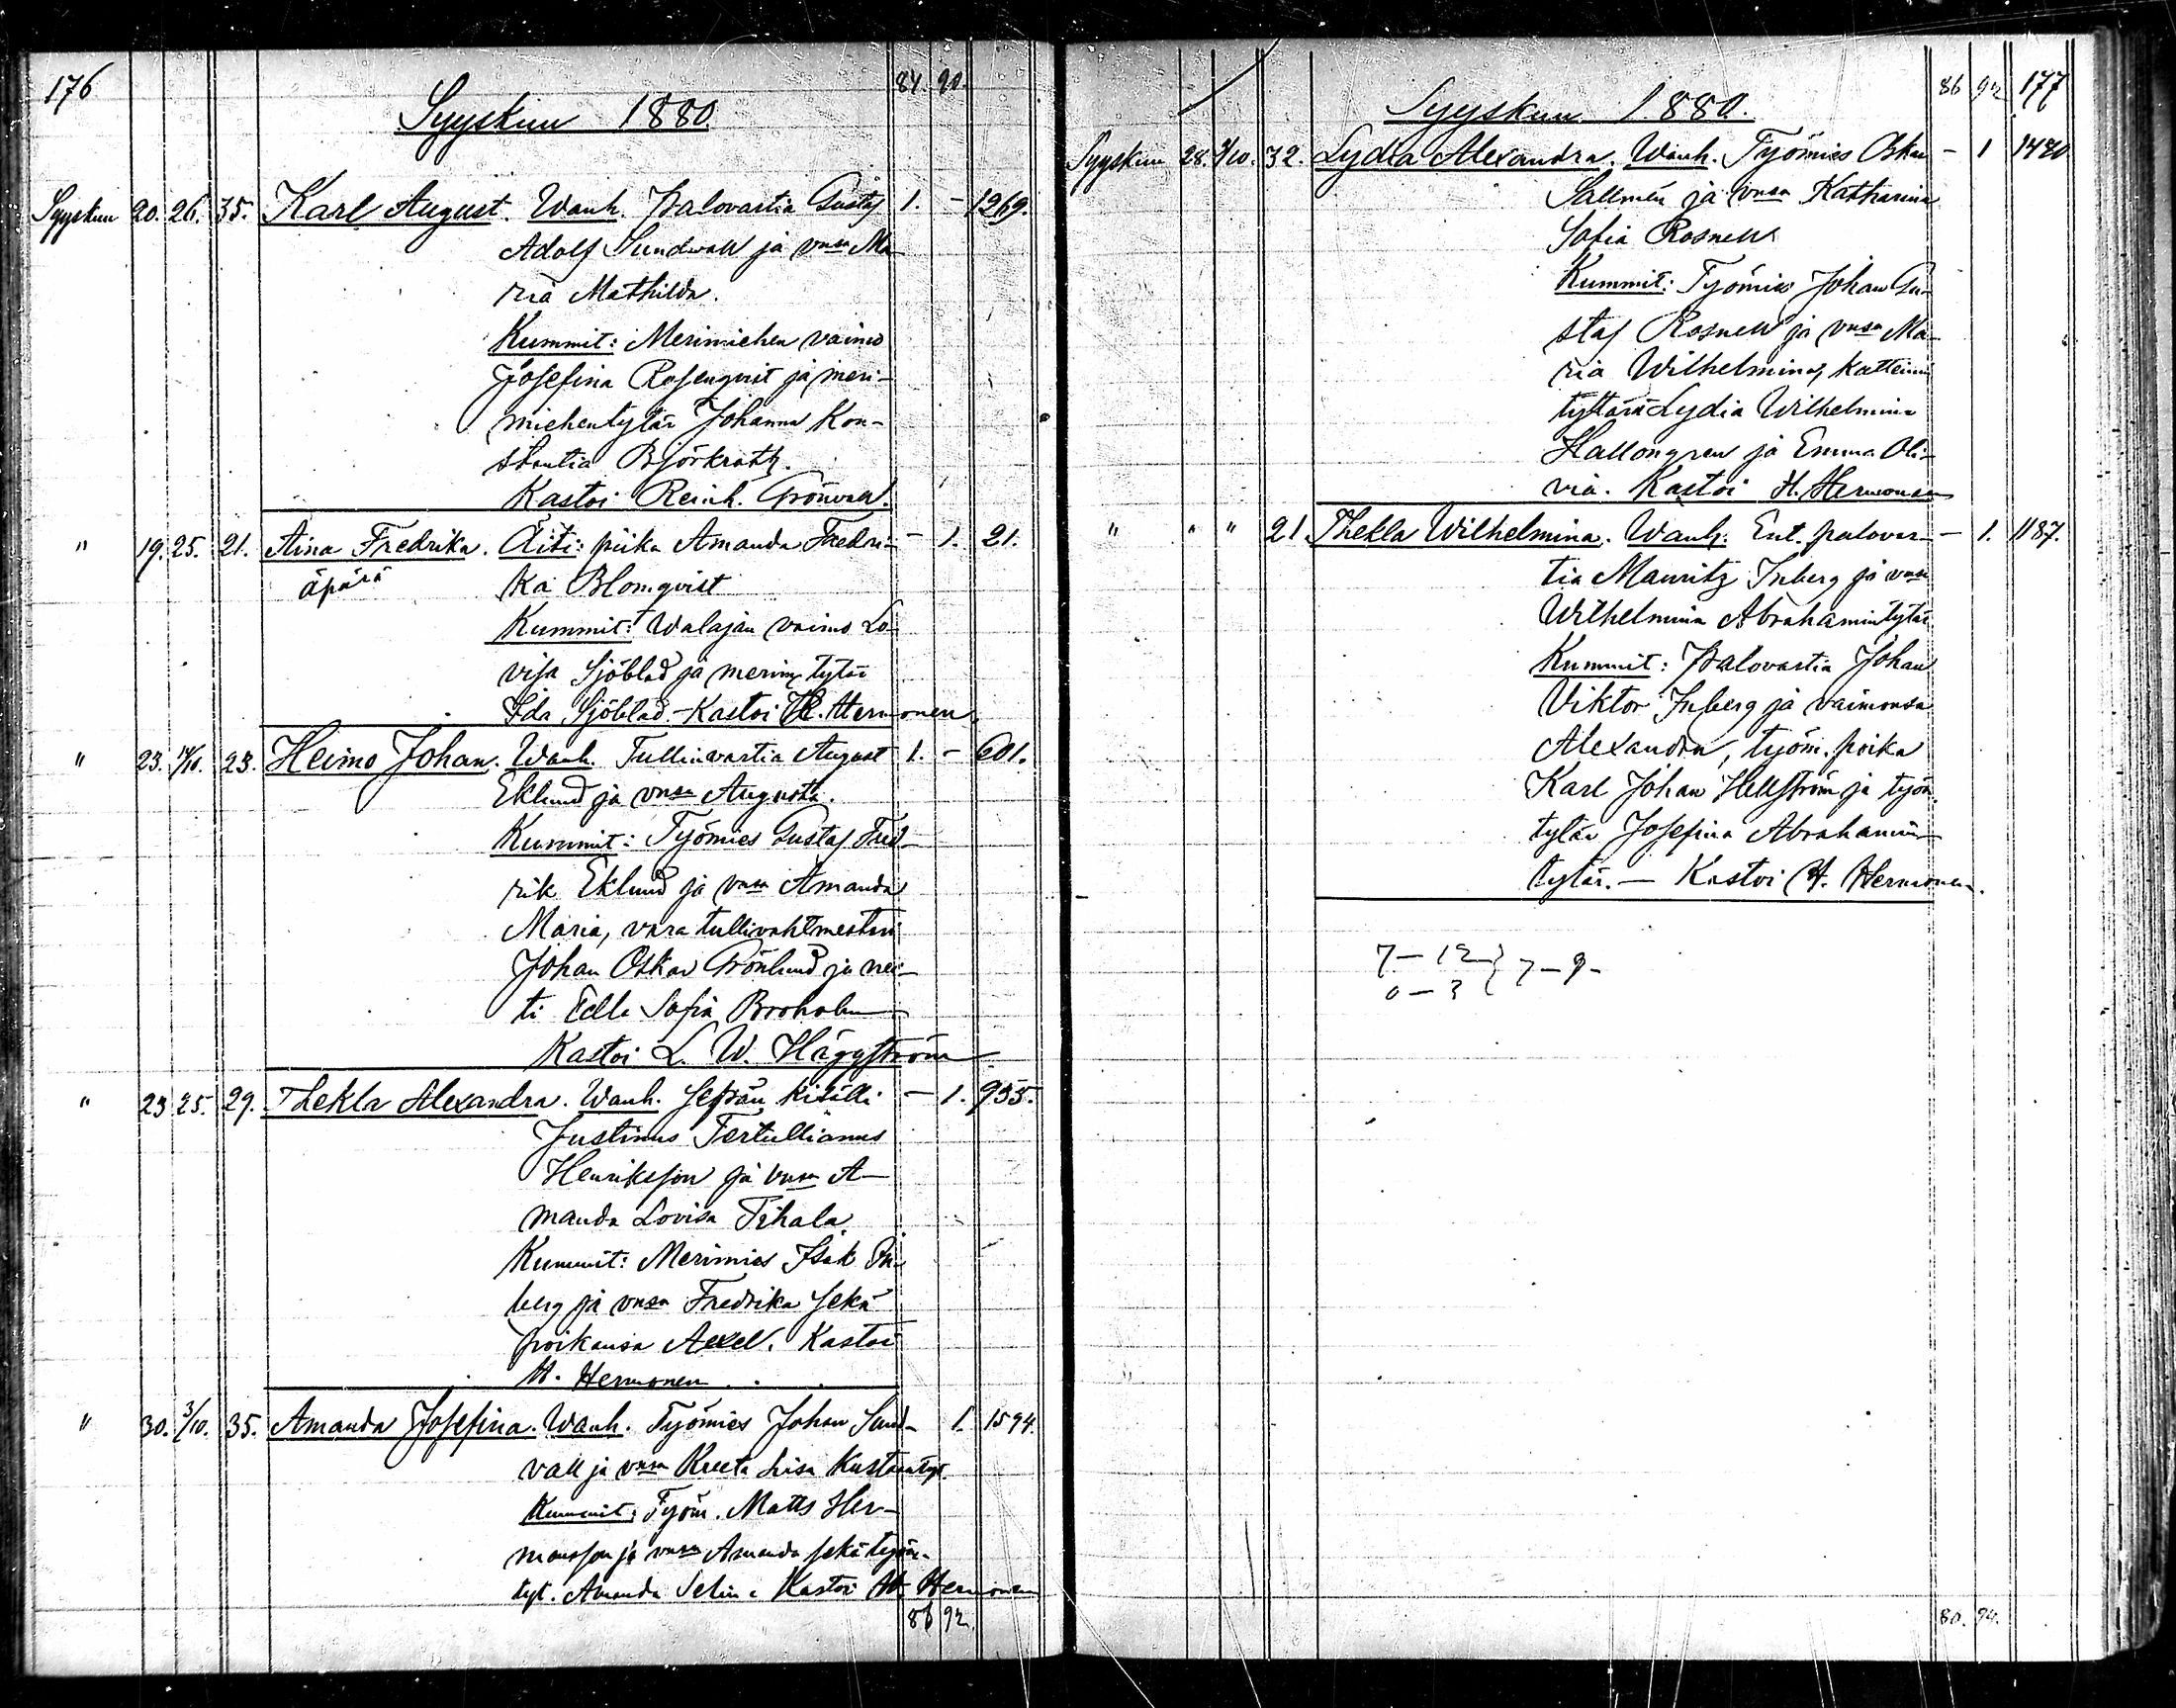 176
84. 90.
Syyskuu 1880.
Syyskuu 20. 26. 35. Karl August. Wanh. Palovartia Gustaf 1. - 1269.
Adolf Sundwall ja vnsa Ma-
ria Mathilda.
Kummit: Merimiehen vaimo
Josefina Rosenqvist ja meri-
miehentytär Johanna Kon-
stantia Björkroth.
Kastoi Reinh. Grönvall.
" 19. 25. 21. Aina Fredrika. Äiti: piika Amanda Fredri- - 1. 21.
äpärä ka Blomqvist
Kummit: Walajan vaimo Lo-
visa Sjöblad ja merim. tytär
Ida Sjöblad. - Kastoi H. Hermonen.
" 23. 14/10. 23. Heimo Johan. Wanh. Tullinvartia August 1. - 601.
Eklund ja vnsa Augusta.
Kummit: Työmies Gustaf Fred-
rik Eklund ja vnsa Amanda
Maria, vara tullivahtmestari
Johan Oskar Grönlund ja nei-
ti Edla Sofia Broholm
Kastoi L. W. Häggström
" 23 25. 29. Thekla Alexandra. Wanh. Sepän kisälli - 1. 955.
Justinus Tertullianus
Henriksson ja vnsa A-
manda Lovisa Tihala.
Kummit: Merimies Isak
berg ja vnsa Fredrika sekä
poikansa Axel. Kastoi
H. Hermonen
" 30. 3/10. 35. Amanda Josefina. Wanh. Työmies Johan Sund- 1. 1594.
vall ja vnsa Kreeta Liisa Kustaantyt.
Kummit: Työm. Matts Her-
mansson ja vnsa Amanda sekä työm.
tyt. Amanda Selin. Kastoi H. Hermonen
86 92.
86 92 177
Syyskuu 1880.
Syyskuu 28. 3/10. 32. Lydia Alexandra. Wanh. Työmies Oskar - 1 1420
Sallmén ja vnsa Katharina
Sofia Rosnell
Kummit: Työmies Johan Gu-
staf Rosnell ja vnsa Ma-
ria Wilhelmina,
tyttäret Lydia Wilhelmina
Hallongren ja Emma Oli-
via. Kastoi H. Hermonen
" " " 21. Thekla Wilhelmina. Wanh. Ent. palovar- - 1. 1187.
tia Mauritz Inberg ja vnsa
Wilhelmina Abrahamintytär
Kummit: Palovartia Johan
Viktor Inberg ja vaimonsa
Alexandra, työm. poika
Karl Johan Hellström ja työm.
tytär Josefina Abrahamin-
tytär. - Kastoi H. Hermonen.
7 - 12 } 7 - 9 -
0 - 3
80. 94.